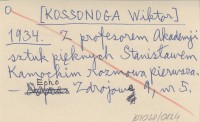 [KOSSONOGA Wiktor]
1934. Z profesorem Akademji
sztuk pięknych Stanisławem
Kamockim rozmowa pierwsza.
Echo
— Zdrojowe 9, nr 5.